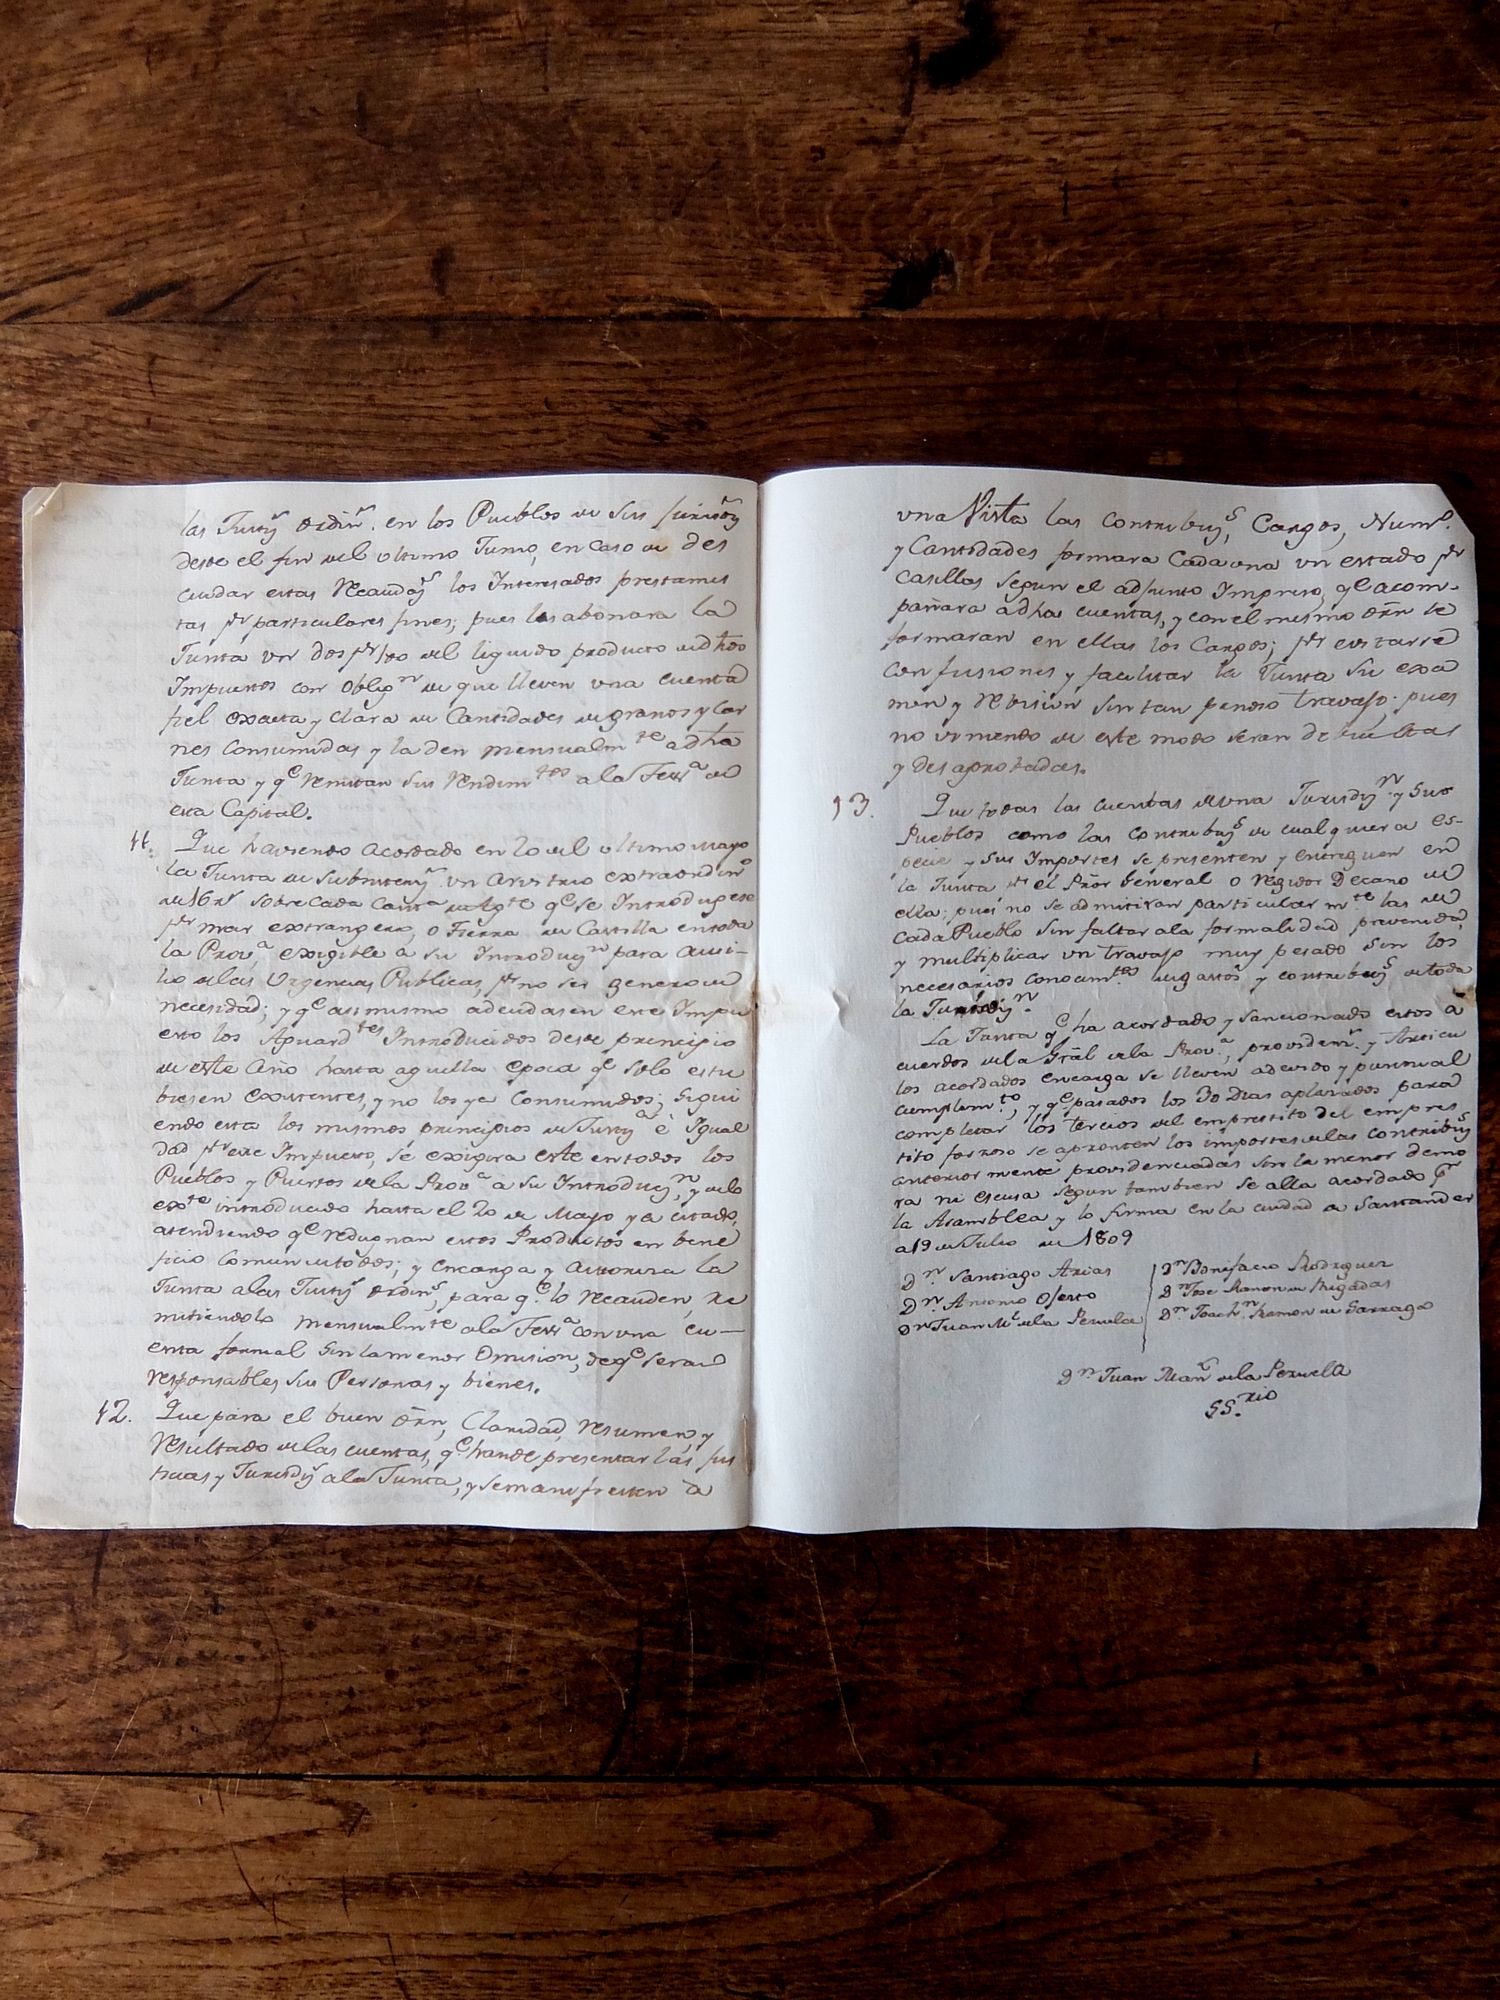 las Justs ordins. en los Pueblos de sus jurisdon
desde el fin del ultimo Tumo, en caso de des
cuidar estas Recaudas los Interesados prestamis
tas pr particulares fines; pues les abonara la
Junta un dos pr 100 del liquido producto de dhos
Impuestos con Obligon de que lleven una cuenta
fiel exacta y clara de Cantidades de granos y Car
nes Consumidas y la den mensualmte a dha
Junta y qe remitan sus Rendimtos a la Tesra de
esta Capital.
11. Que haviendo acordado en 20 del ultimo Mayo
la Junta de Subsistens. un arvitrio extraordino
de 16 rs sobre cada Canta de Agte qe se Introdugese
pr mar extrangero, o Tierra de Castilla en toda
la Prova, exigible a su Introducn para auxi-
lio de las Urgencias Publicas, pr no ser genero de
necesidad; y qe asi mismo adeudasen este Impu
esto los Aguardtes Introducidos desde principio
de este Año hasta aquella epoca qe solo estu
biesen existentes, y no los ya Consumidos; Sigui
endo esta los mismos principios de Justa è Igual
dad pr este Impuesto, se exigira este en todos los
Pueblos y Puertos de la Prova a su Introducn, y de lo
exte introducido hasta el 20 de Mayo ya citado,
atendiendo qe redugnan estos Productos en bene
ficio comun de todos; y encarga y Autoriza la
Junta a las Justs ordins, para qe lo recauden, re
mitiendolo mensualmte a la Tesra con una cu—
enta formal sin la menor Omision, de qe seran
responsables sus Personas y bienes.
12. Que para el buen orn, Claridad, resumen, y
Resultado de las cuentas, qe han de presentar las Jus
ticias y Jurisds a la Junta, y se manifiesten a
una Vista las Contribus, Cargos, Numo.
y Cantidades formara Cada una un estado pr
Casillas segun el adjunto Impreso, qe acom-
pañara a dha cuentas, y con el mismo orn se
formaran en ellas los Cargos; pr evitarse
confusiones y facilitar la Junta su exa
men y rebision sin tan penoso travajo; pues
no viniendo de este modo seran debueltas
y desaprobadas.
13. Que todas las cuentas de una Jurisdin y sus
Pueblos como las contribus de cualquiera es-
pecie y sus Importes se presenten y entreguen en
la Junta pr el Pror General o Regidor Decano de
ella; pues no se admitiran particularmte las de
Cada Pueblo sin faltar a la formalidad prevenida,
y multiplicar un travajo muy pesado sin los
necesarios conocimtos de gastos y contribus de toda
la Jurisdin.
La Junta qe ha acordado y sancionado estos a
cuerdos de la Gral de la Prova, providens. y Articu
los acordados encarga se lleven a devido y puntual
cumplimto, y qe pasados los 30 Dias aplazados para
completar los tercios del emprestito del empres
tito forzoso se apronten los importes de las contribus
anteriormente providenciadas sin la menor demo
ra ni escusa segun tambien se alla acordado pr
la Asamblea y lo firma en la ciudad de Santander
a 19 de Julio de 1809
Dn. Santiago Arias
Dn. Antonio Oserto
Dn Juan Ml de la Pezuela
Dn Bonifacio Rodriguez
Dn Jose Ramon de Rugadas
Dn. Joachn Ramon de Garnago
Dn Juan Manl de la Pezuela
SS.rio